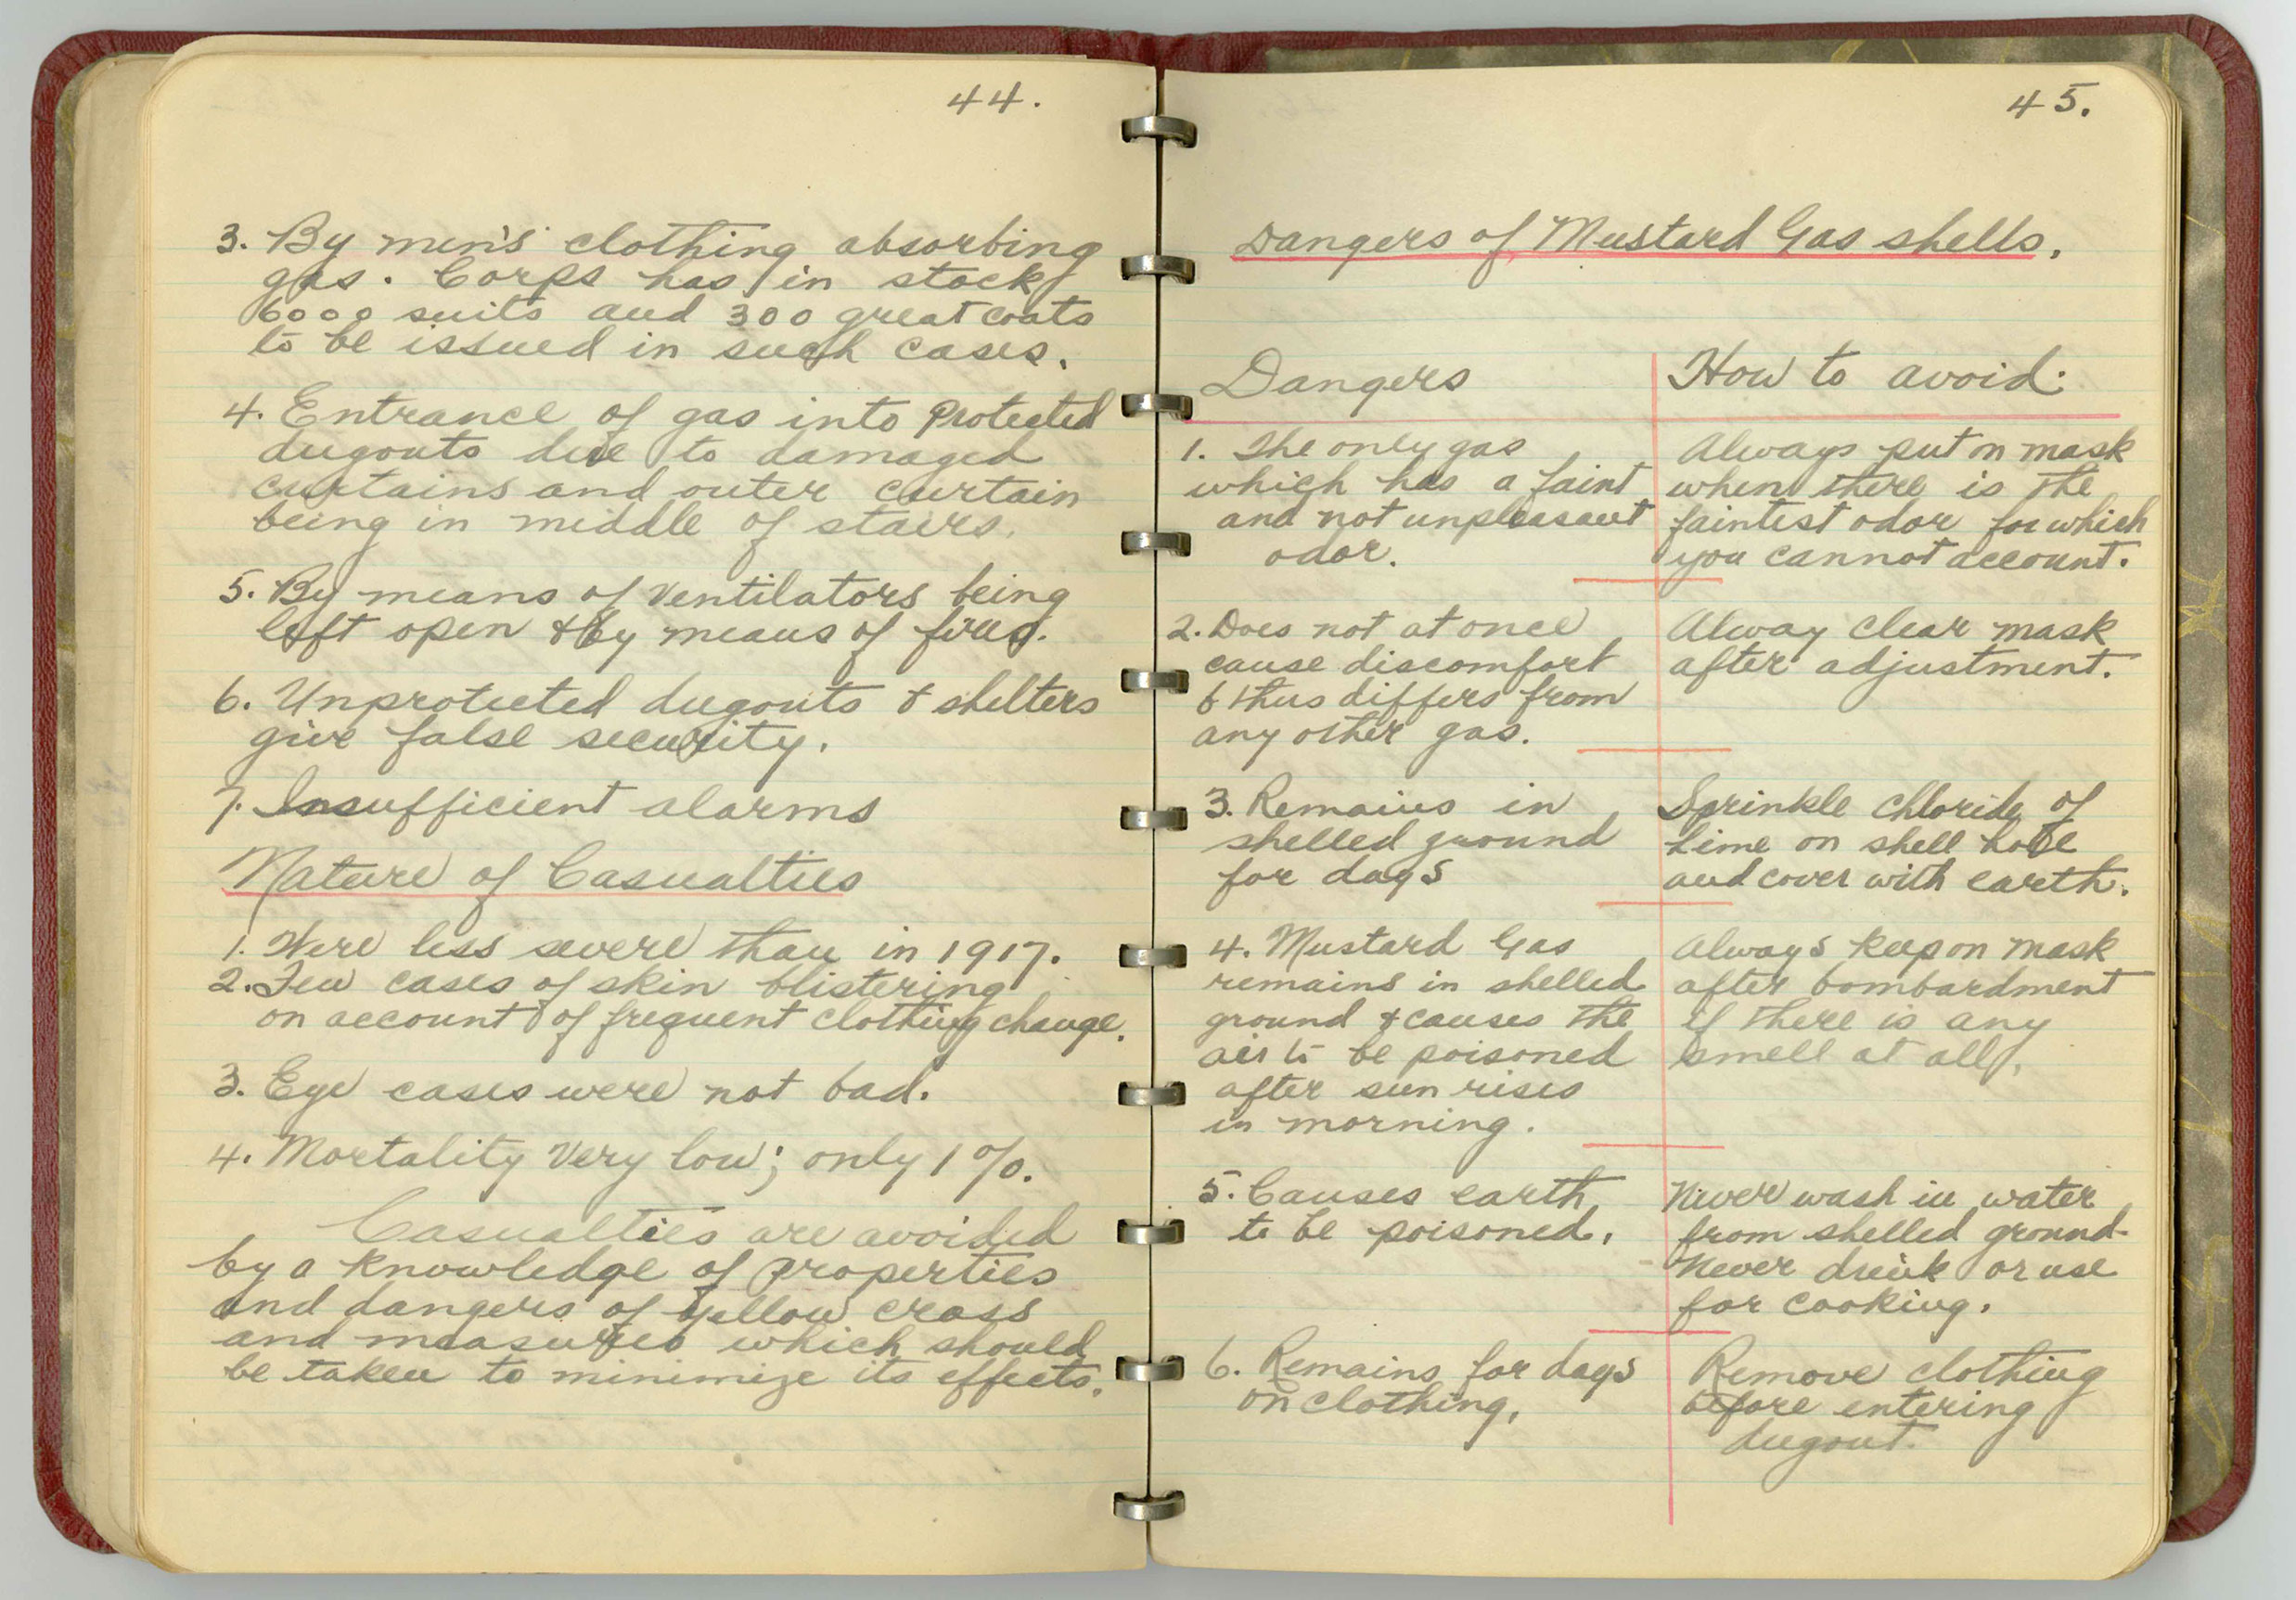 44.
3. By men's clothing absorbing
gas. Corps has in stock
6000 suits and 300 great coats
to be issued in such cases.
4. Entrance of gas into Protected
dugouts due to damaged
curtains and outer curtain
being in middle of stairs.
5. By means of Ventilators being
left open & by means of fires.
6. Unprotected dugouts & shelters
give false security.
7. Insufficient alarms
Nature of Casualties
1. Were less severe than in 1917.
2. Few cases of skin blistering
on account of frequent clothing change.
3. Eye cases were not bad.
4. Mortality Very low; only 1%.
Casualties are avoided
by a knowledge of Properties
and dangers of Yellow cross
and measures which should
be taken to minimize its effects.
45.
Dangers of Mustard Gas shells.
Dangers
1. The only gas
which has a faint
and not unpleasant
odor.
2. Does not at once
cause discomfort
& thus differs from
any other gas.
3. Remains in
shelled ground
for days
4. Mustard Gas
remains in shelled
ground & causes the
air to be poisoned
after sun rises
in morning.
5. Causes earth
to be poisoned.
6. Remains for days
on clothing.
How to avoid:
Always put on mask
when there is the
faintest odor for which
you cannot account.
Alway clear mask
after adjustment.
Sprinkle Chloride of
Lime on shell hole
and cover with earth.
Always keep on mask
after bombardment
if there is any
smell at all.
Never wash in water
from shelled ground-
Never drink or use
for cooking.
Remove clothing
before entering
dugout.